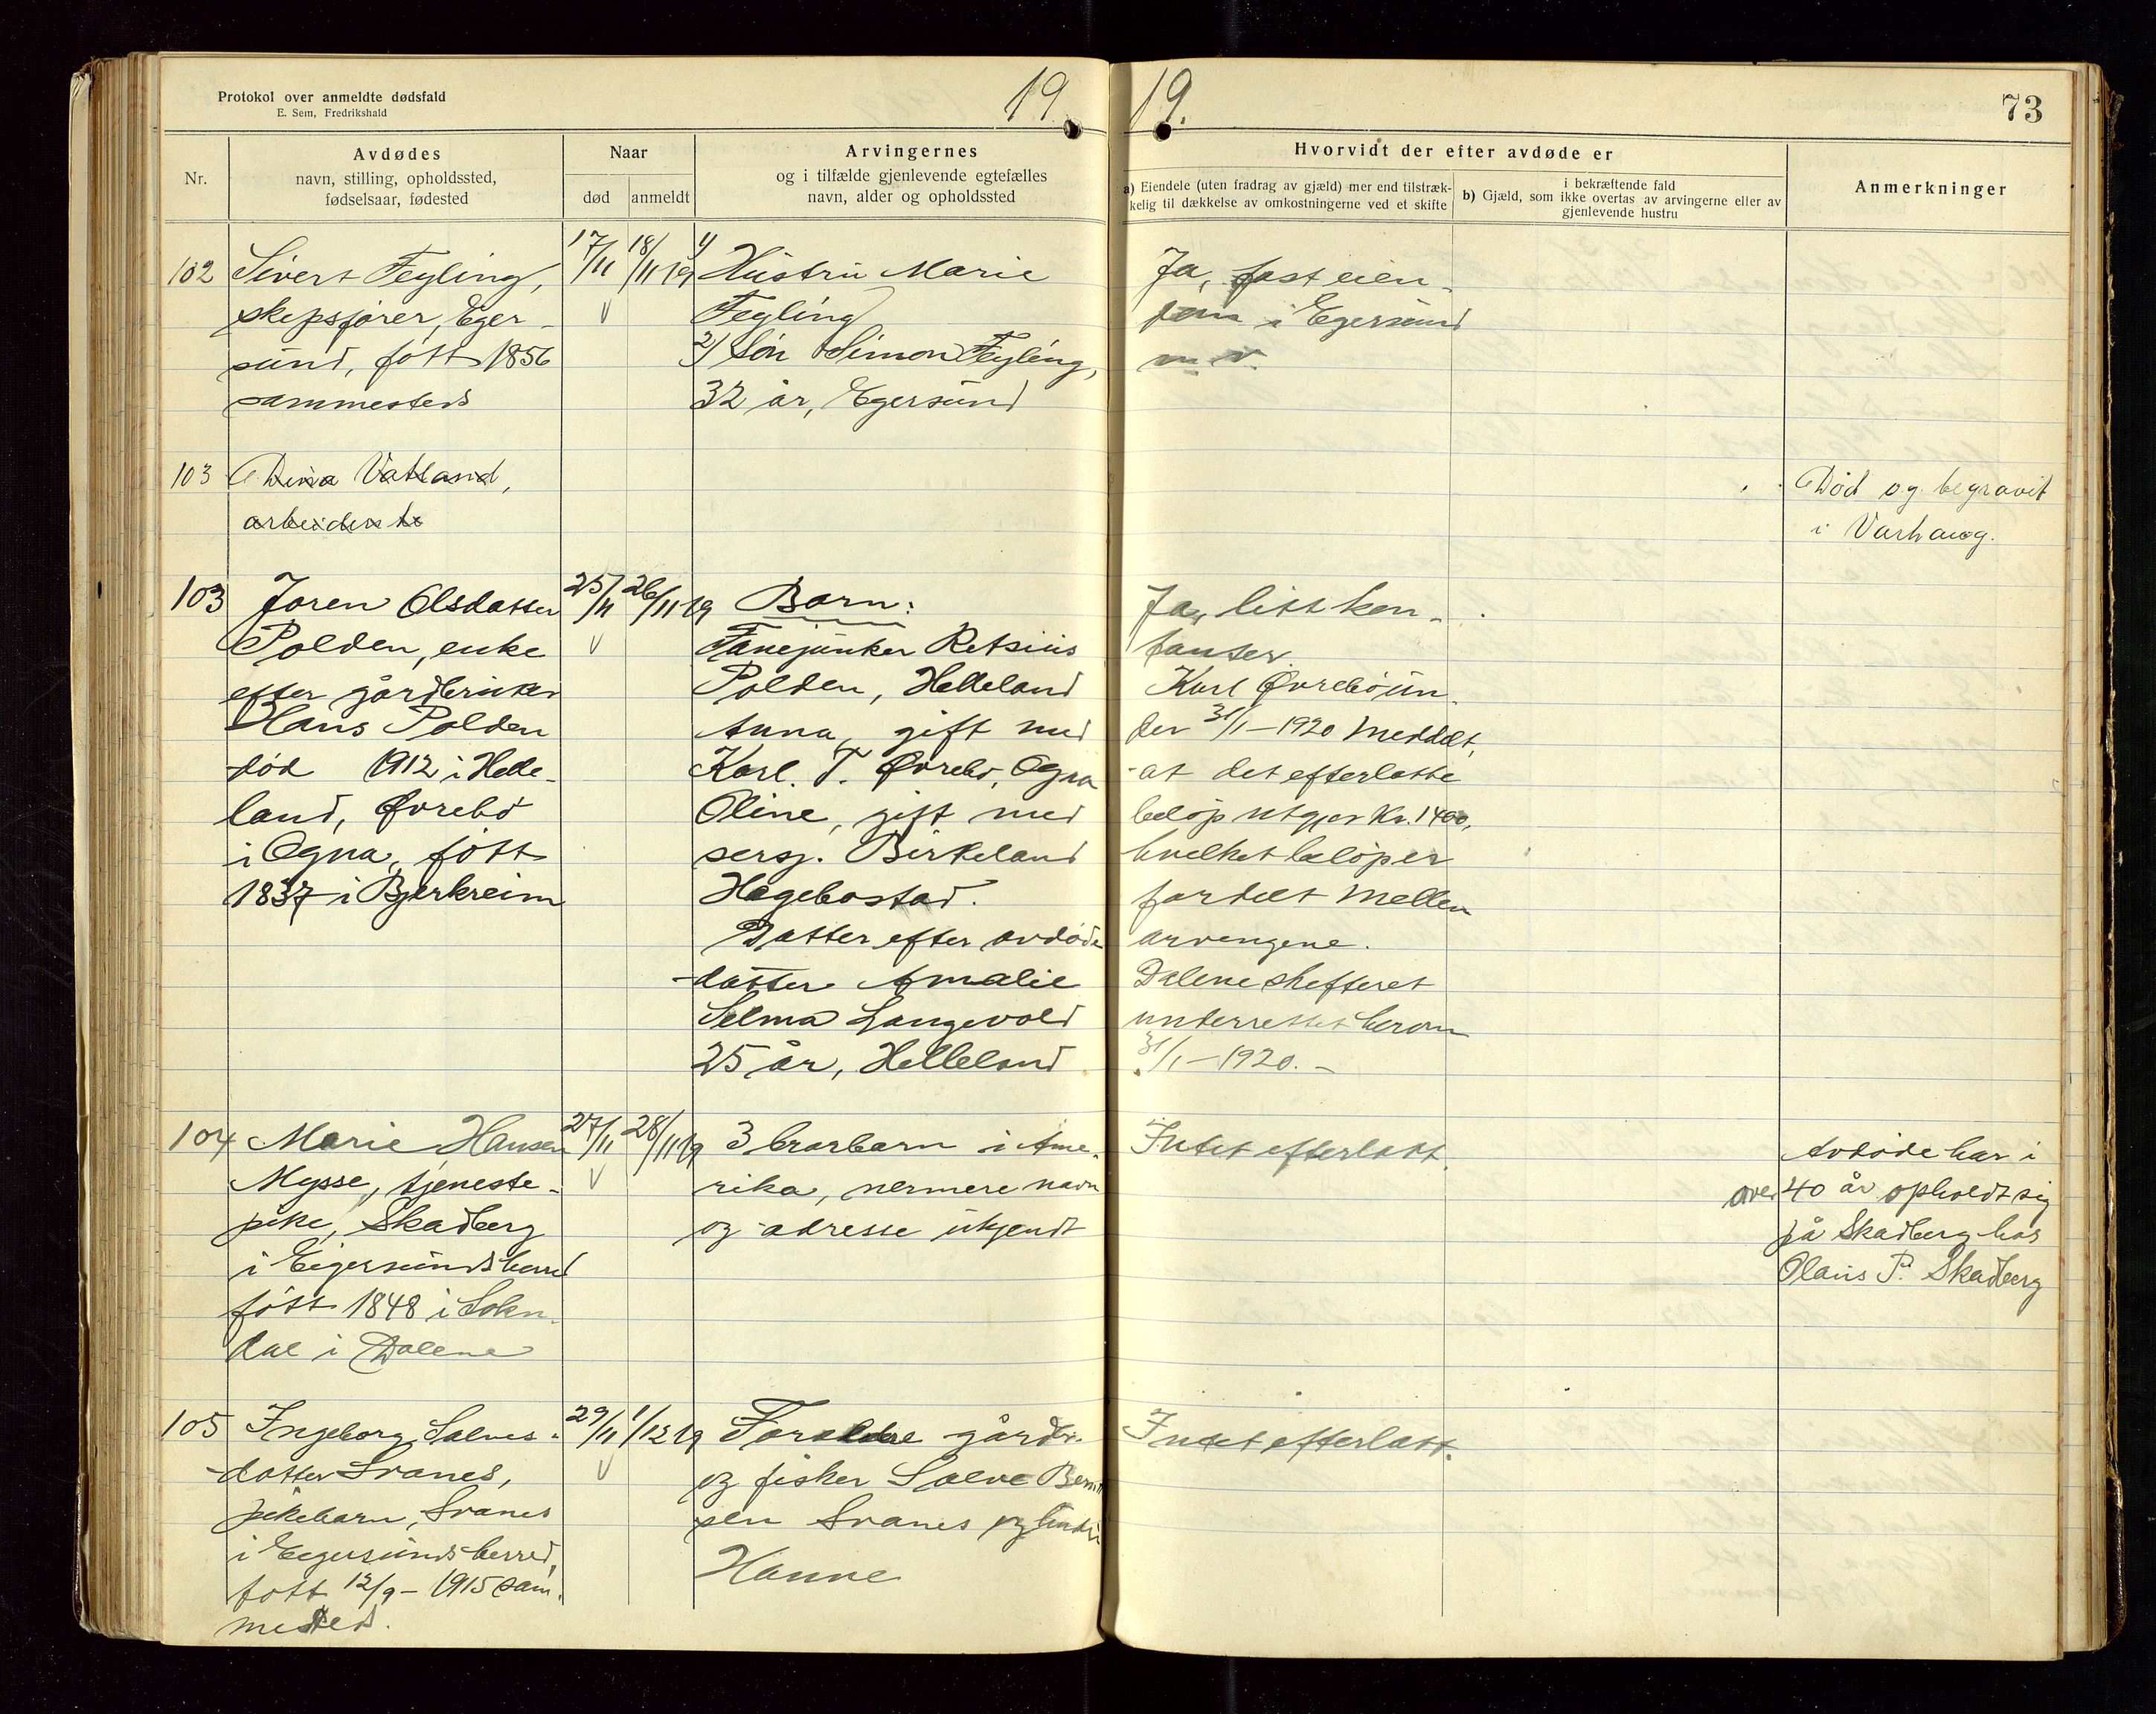 Protokol over anmeldte dødsfald
E. Sem, Fredrikshald
19
19.
73
Nr.
Avdødes
navn, stilling, opholdssted,
fødselsaar, fødested
Naar
død
anmeldt
Arvingernes
og i tilfælde gjenlevende egtefælles
navn, alder og opholdssted
Hvorvidt der efter avdøde er
a) Eiendele (uten fradrag av gjæld) mer end tilstræk-
kelig til dækkelse av omkostningerne ved et skifte
b) Gjæld, som
i bekræftende fald
ikke overtas av arvingerne eller av
gjenlevende hustru
Anmerkninger
102
Sivert Feyling,
skipsfører, Eger-
sund, født 1856
sammesteds
17/11
18/11 19
1/ Hustru Marie
Feyling
2/ Søn Simon Feyling,
32 år, Egersund
Ja, fast eien-
dom i Egersund
m. v.
103
Dina Vatland,
arbeiderske
Død og begravet
i Varhaug.
103
Joren Olsdatter
Polden, enke
efter gårdbruker
Hans Polden
død 1912 i Helle-
land, Øvrebø
i Ogna, født
1837 i Bjerkreim
25/11
26/11 19
Barn:
Fanejunker Retsius
Polden, Helleland
Anna, gift med
Karl T. Øvrebø, Ogna
Oline, gift med
sersj. Birkeland
Hægebostad.
Datter efter avdøde
datter Amalie
Selma Langevold
25 år, Helleland
Ja, litt kon-
tanter.
Karl Øvrebø un-
der 31/1-1920 meddelt,
at det efterlatte
beløp utgjør Kr. 1400,
hvilket beløp er
fordelt mellem
arvingene.
Dalene skifteret
underrettet herom
31/1-1920.-
104
Marie Hansen
Mysse, tjeneste-
pike, Skadberg
i Eigersunds herred
født 1848 i Sokn-
dal i Dalene
27/11
28/11 19
3 brorbarn i Ame-
rika, nermere navn
og adresse ukjendt
Intet efterlatt.
Avdøde har i
over 40 år opholdt sig
på Skadberg hos
Olaus P. Skadberg
105
Ingeborg Salves-
datter Svanes,
pikebarn, Svanes
i Eigersunds herred,
født 12/9-1915 sam-
mested.
29/11
1/12 19
Forældre gårdbr.
og fisker Salve Bernt
sen Svanes og hustru
Hanne
Intet efterlatt.